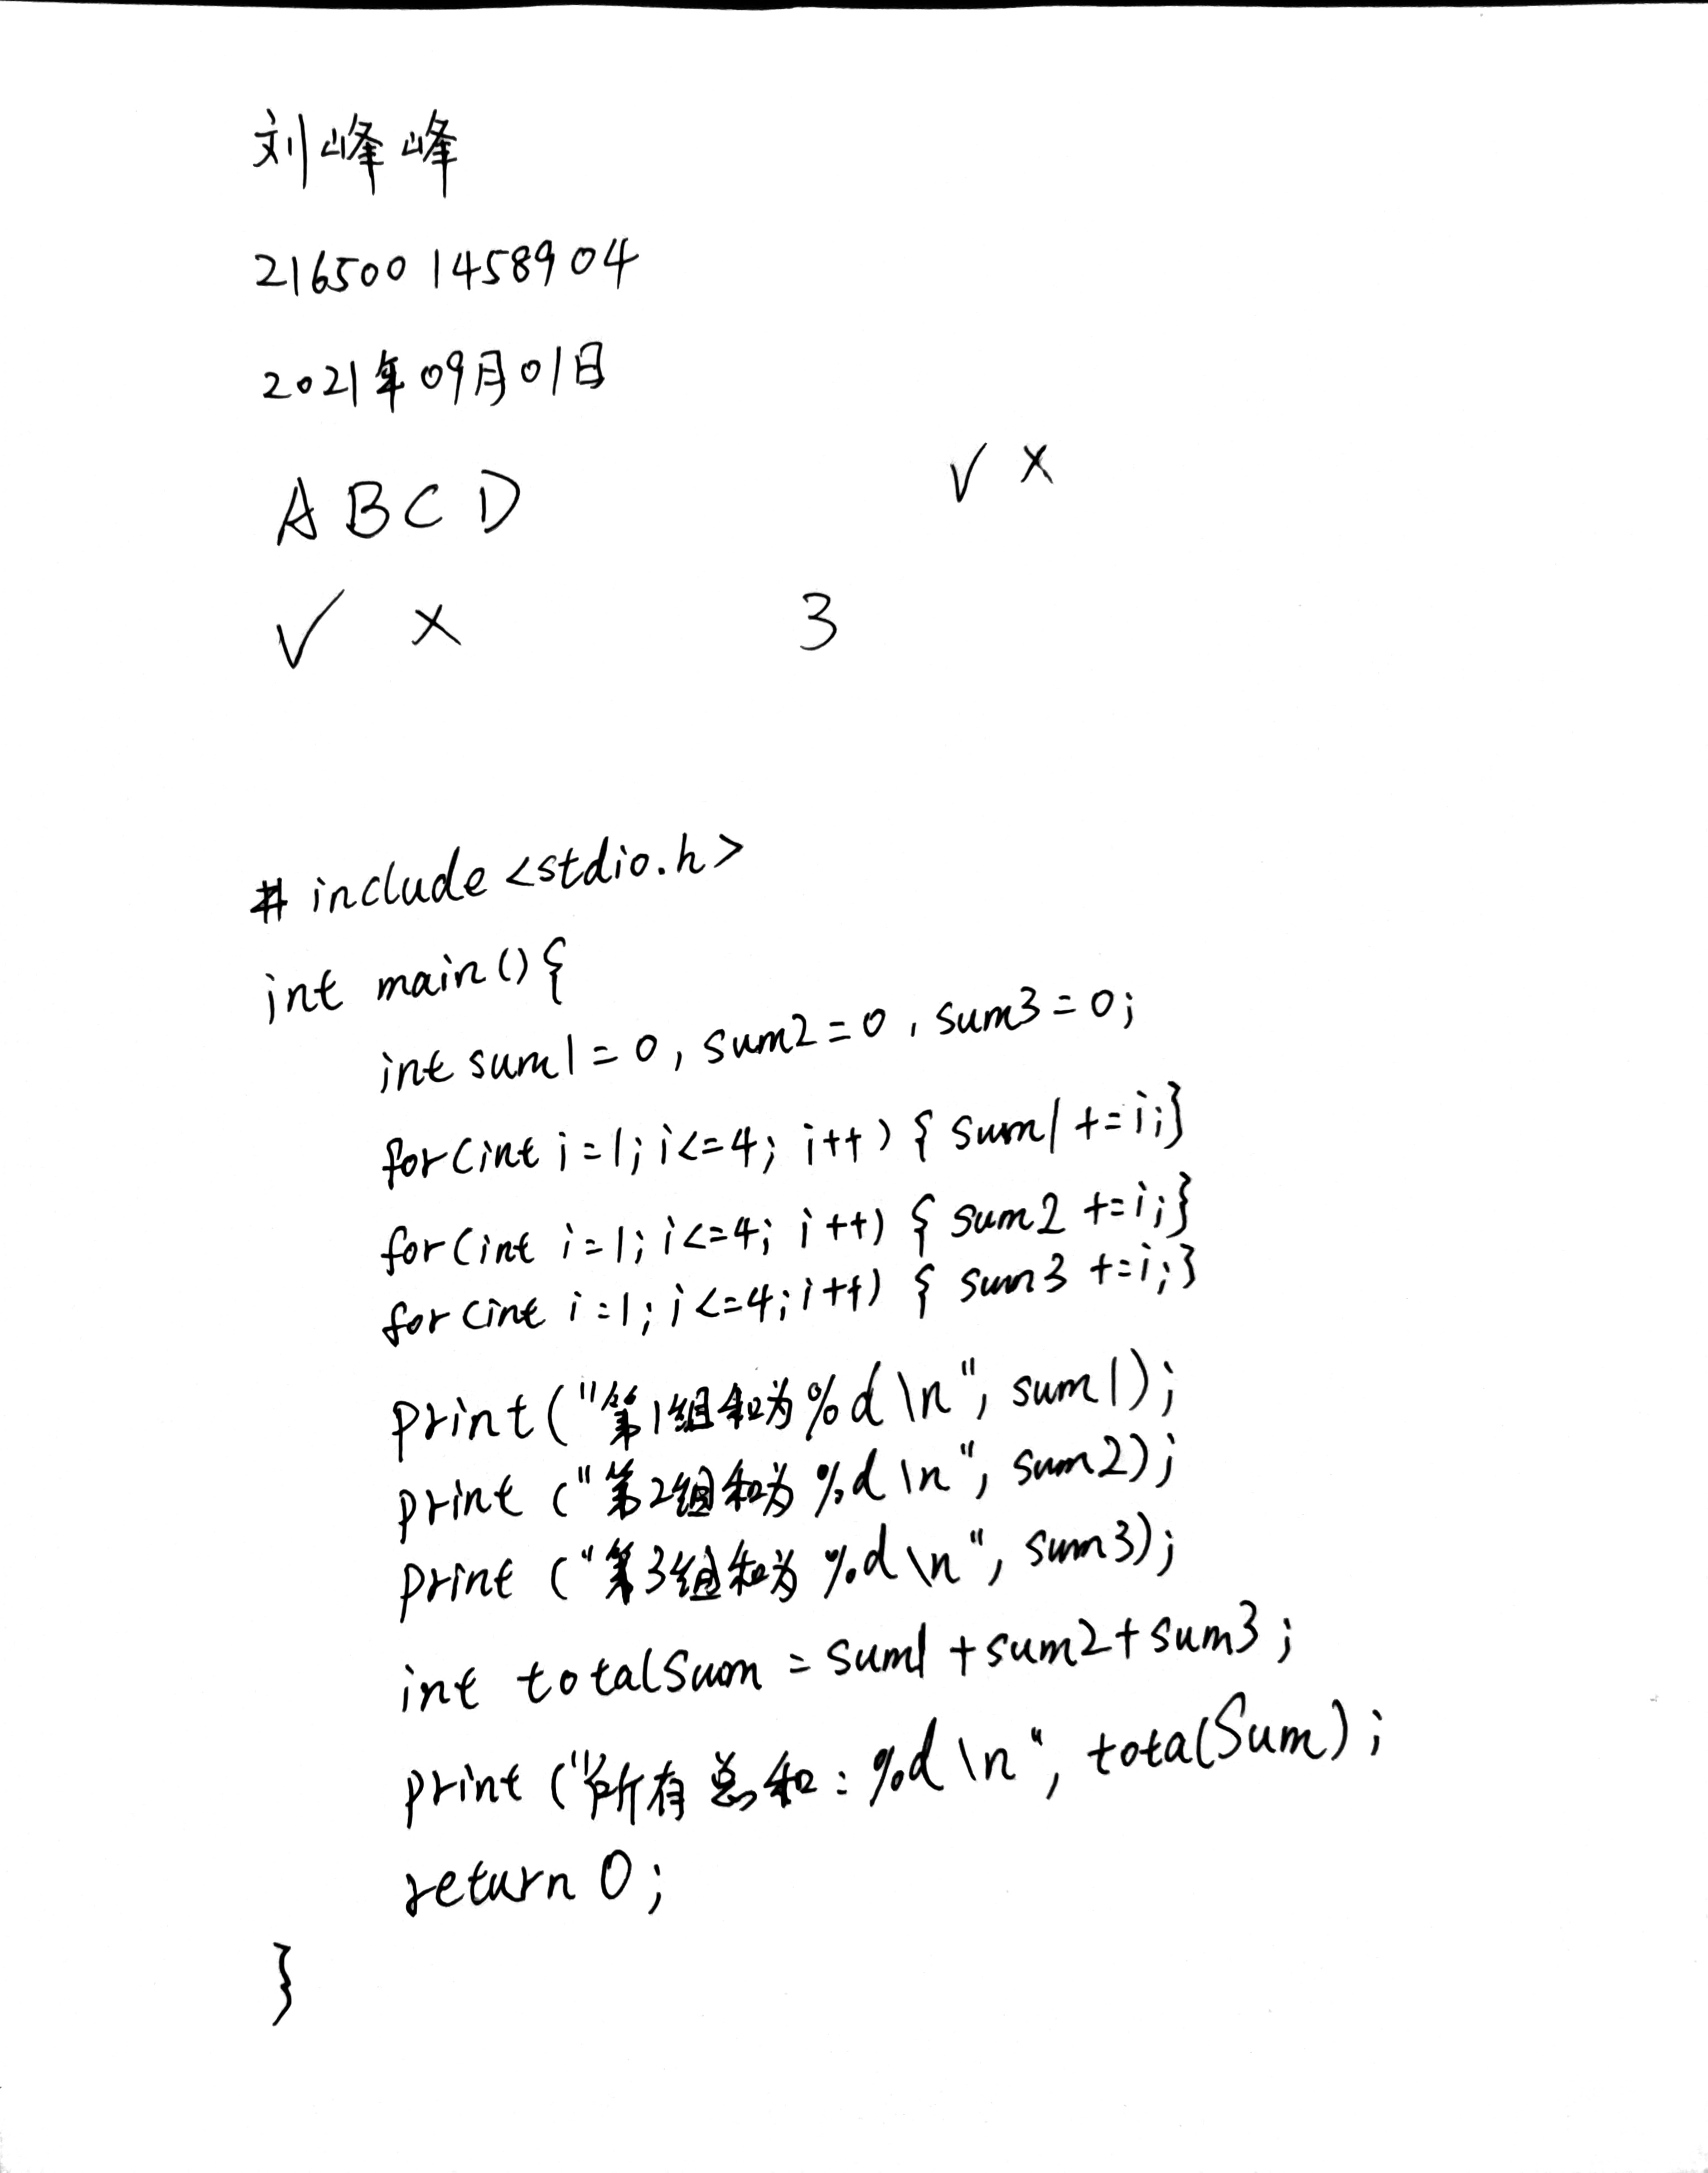 刘峰峰
2165001458904
2021年09月01日
√ ×
A B C D
√ × 3
# include <stdio.h>
int main(){
int sum1=0, sum2=0, sum3=0;
for(int i=1; i<=4; i++) { sum1 +=i;}
for(int i=1; i<=4; i++) { sum2 +=i;}
for(int i=1; i<=4; i++) { sum3 +=i;}
print("第1组和为%d \n", sum1);
print ("第2组和为 %d \n", sum2);
print ("第3组和为 %d \n", sum3);
int totalSum = sum1 +sum2+sum3;
print ("所有总和: %d \n", totalSum);
return 0;
}